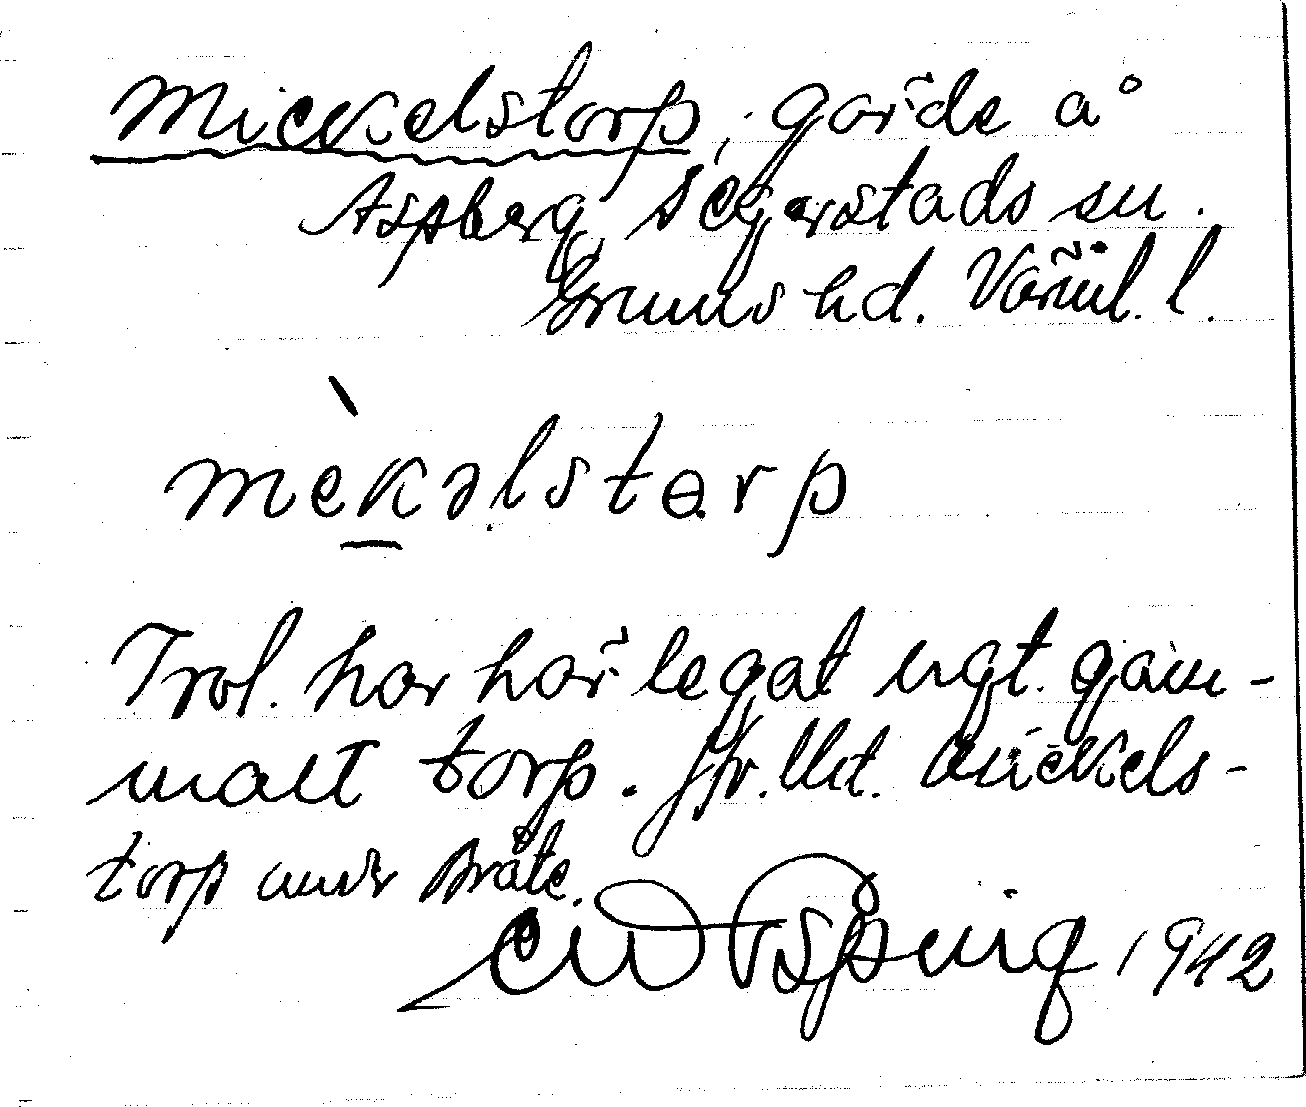 Mickelstorp, gärde å
Aspberg, Segerstads sn.
Grums hd. Värml. l.
mèkəlstɵrp
Trol. har här legat ngt gam-
malt torp. Jfr. Mickels-
torp under Bråte.
Aspling 1942